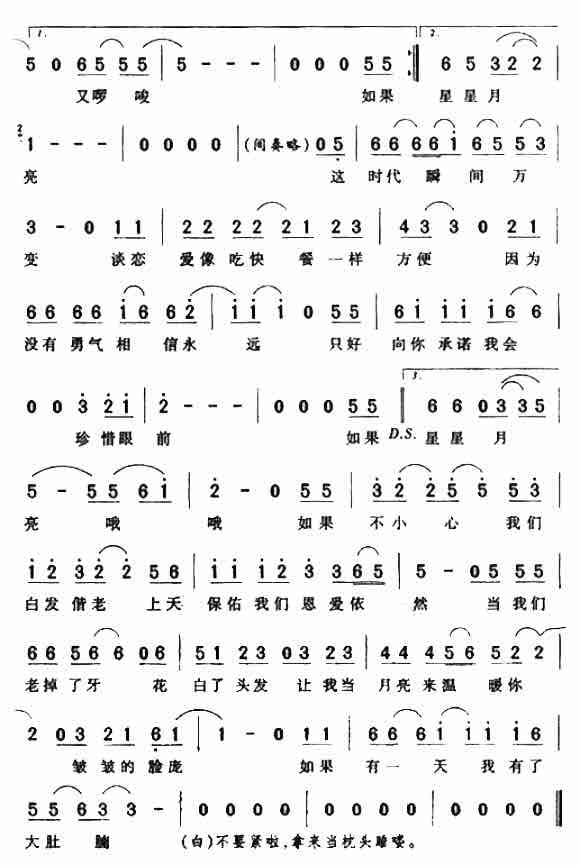 1. 2.
5 0 65 55 | 5 - - - | 0 0 0 55 :‖ 6 5 322 |
又啰唆 如果 星星月
1 - - - | 0 0 0 0 | (间奏略) 05 | 66 661 65 53 |
亮 这时代瞬间万
3 - 0 11 | 22 22 21 23 | 43 3 0 21 |
变 谈恋爱像吃快餐一样方便 因为
66 66 16 62 | 11 1 0 55 | 61 11 16 6 |
没有勇气相信永远 只好向你承诺我会
3.
0 0 3 21 | 2 - - - | 0 0 0 55 ‖ 6 6 03 35 |
珍惜眼前 如果 D.S. 星星月
5 - 55 61 | 2 - 0 55 | 32 25 5 53 |
亮 哦 哦 如果不小心我们
12 32 2 56 | 11 12 3 365 | 5 - 05 55 |
白发偕老 上天保佑我们恩爱依然 当我们
66 56 6 06 | 51 23 03 23 | 44 45 6 522 |
老掉了牙 花白了头发 让我当月亮来温暖你
2 03 21 61 | 1 - 0 11 | 66 61 11 16 |
皱皱的脸庞 如果有一天我有了
55 63 3 - | 0 0 0 0 | 0 0 0 0 | 0 0 0 0 ‖
大肚腩 (白)不要紧啦,拿来当枕头睡喽。